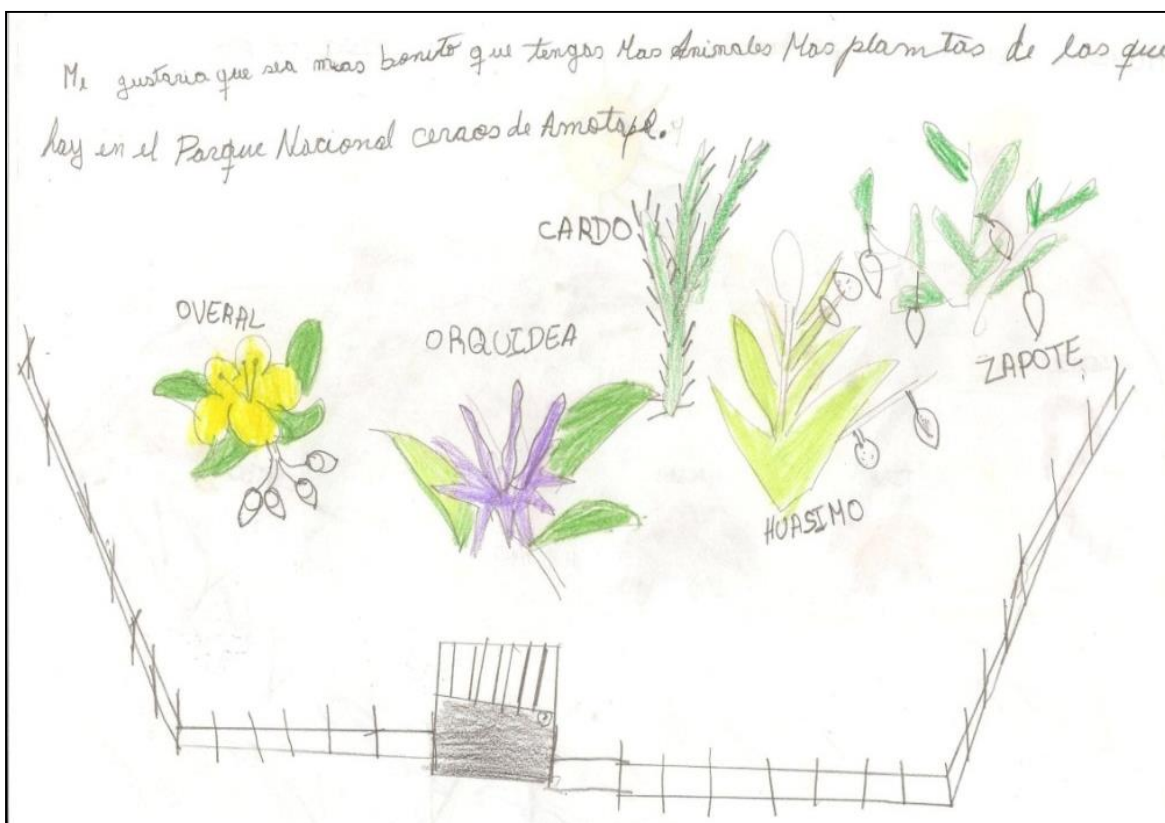 Me gustaria que sea mas bonito que tengas Mas Animales Mas plamtas de las que
hay en el Parque Nacional ceraos de Amotape.
CARDO
OVERAL
ORQUIDEA
ZAPOTE
HUASIMO